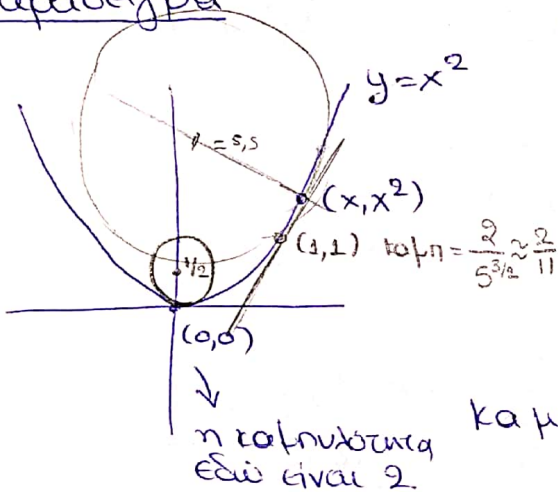 Παράδειγμα
y = x²
ρ = 5,5
(x, x²)
(1,1) καμπ = 2/5^{3/2} ≈ 2/11
1/2
(0,0)
↓
η καμπυλότητα
εδώ είναι 2.
καμ